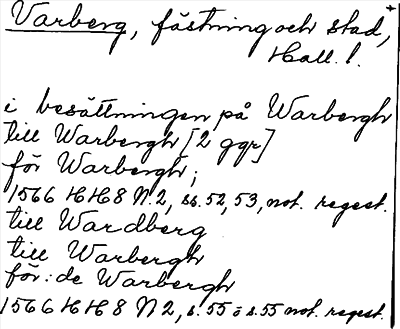 Varberg, fästning och stad,
Hall. l.
i besättningen på Warbergh
till Warbergh [2 ggr]
för Warbergh;
1566 HH8 N.2, ss. 52, 53, not. regest.
till Wardberg
till Warbergh
för: de Warbergh
1566 HH8 N2, s. 55 ö s. 55 not. regest.